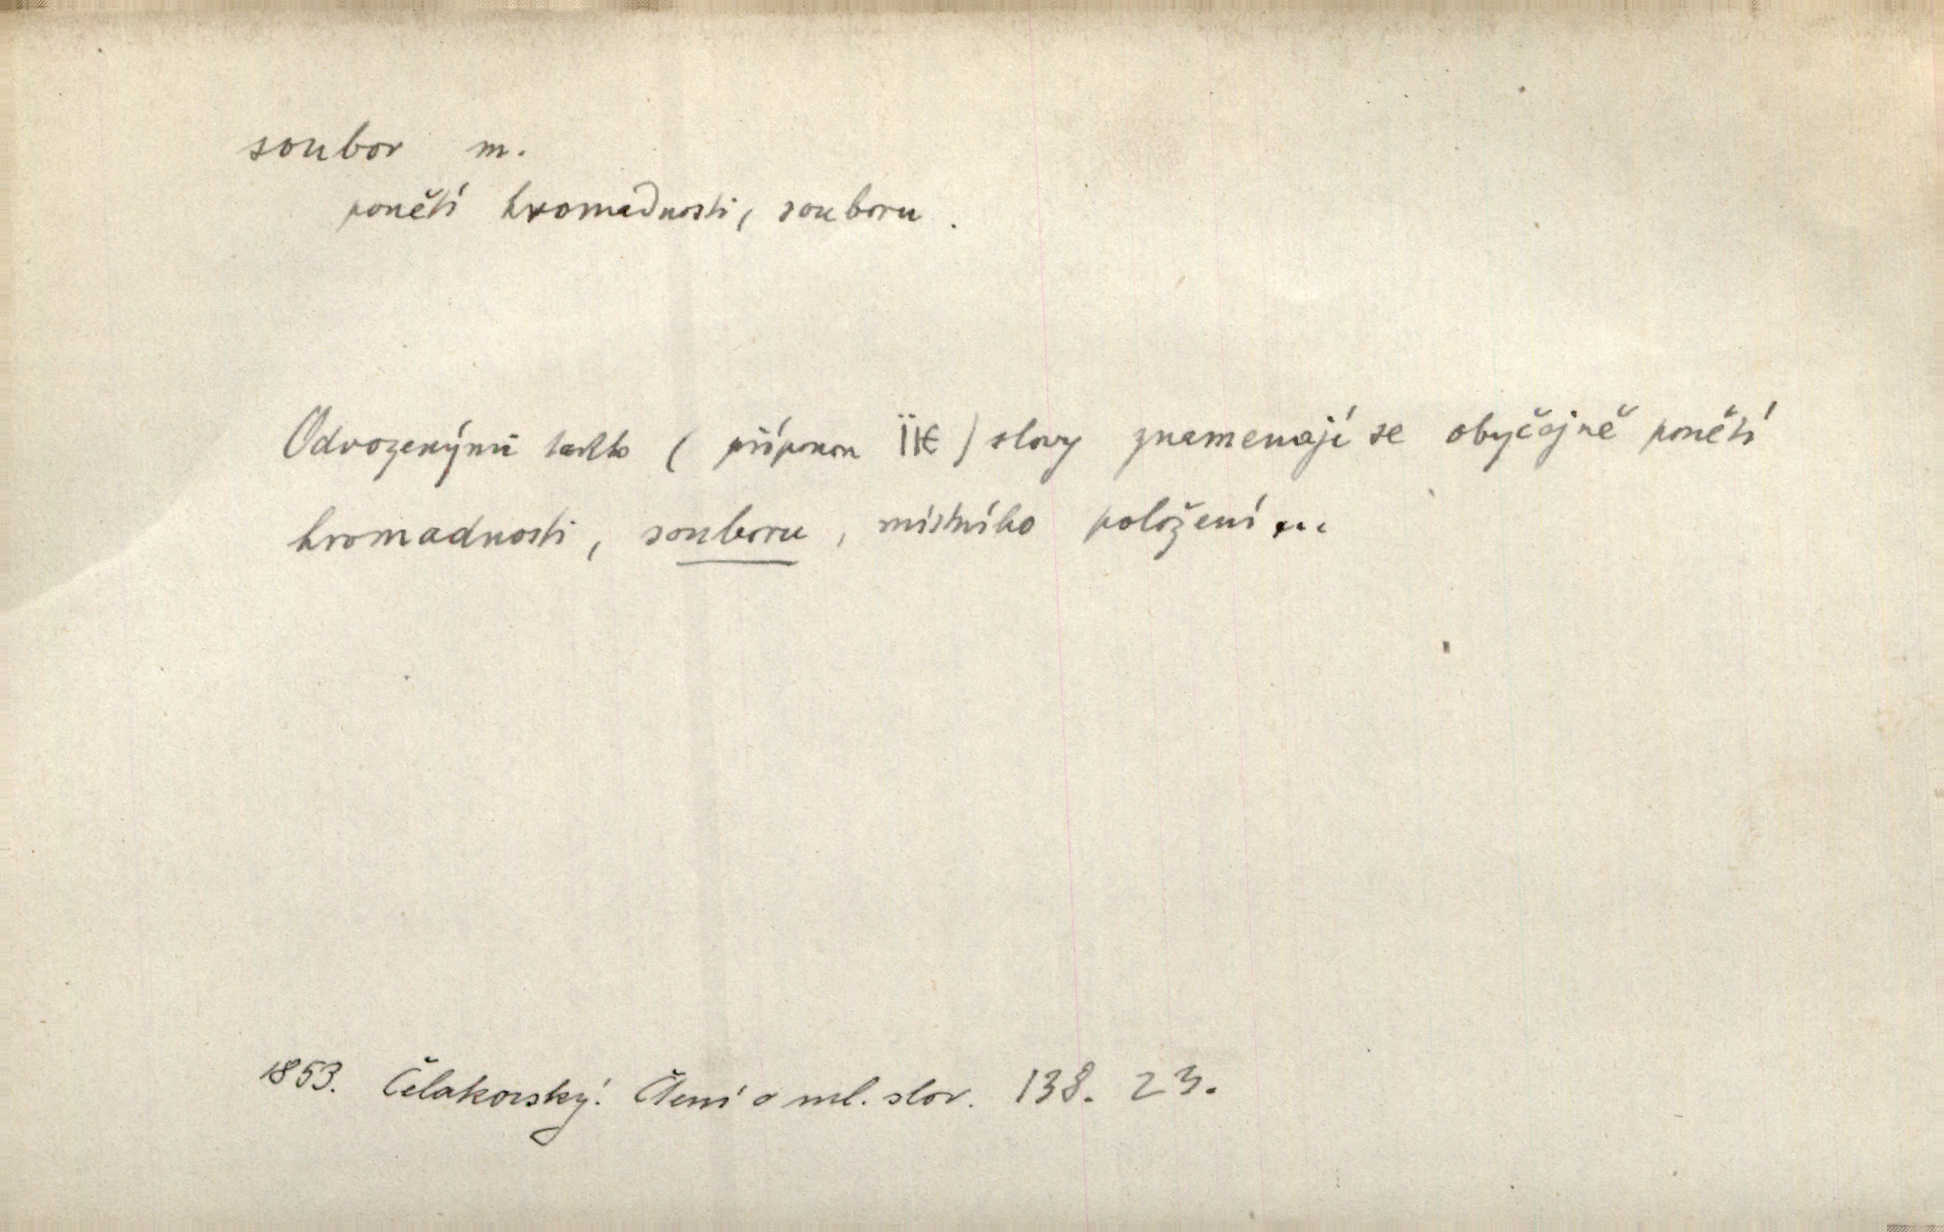 soubor m.
ponětí hromadnosti, souboru.
Odvozenými takto (příponou ÏѤ) slovy znamenají se obyčejně ponětí
hromadnosti, souboru, místního položení...
1853. Čelakovský: Čtení o ml. slov. 138. 23.